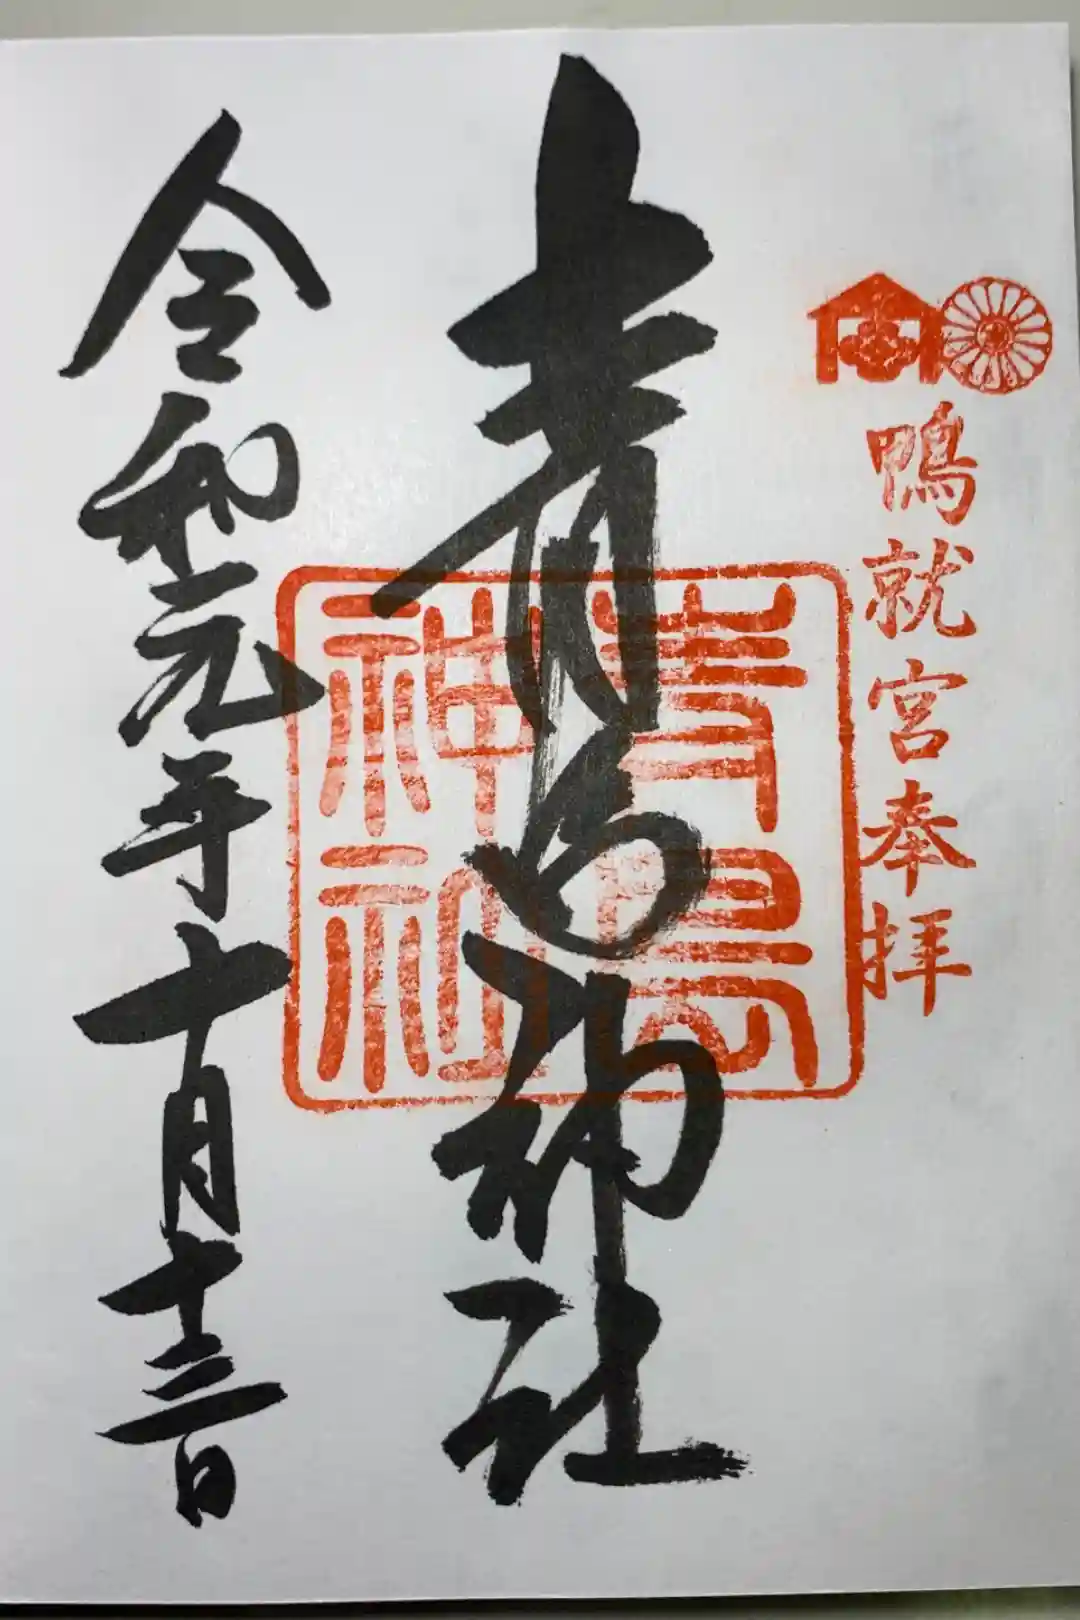 鴨就宮奉拝
青島神社
青島神社
令和元年十月十三日